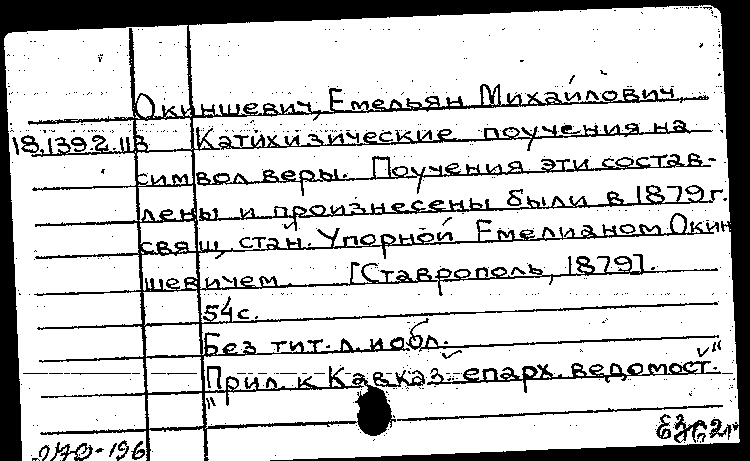 Окиншевич, Емельян Михайлович.
18.139.2.113 Катихизические поучения на
символ веры. Поучения эти состав-
лены и произнесены были в 1879 г.
свящ, стан. Упорной Емелианом Окин
шевичем. [Ставрополь, 1879].
54 с.
Без тит. л. и обл.
"Прил. к Кавказ. епарх. ведомост."